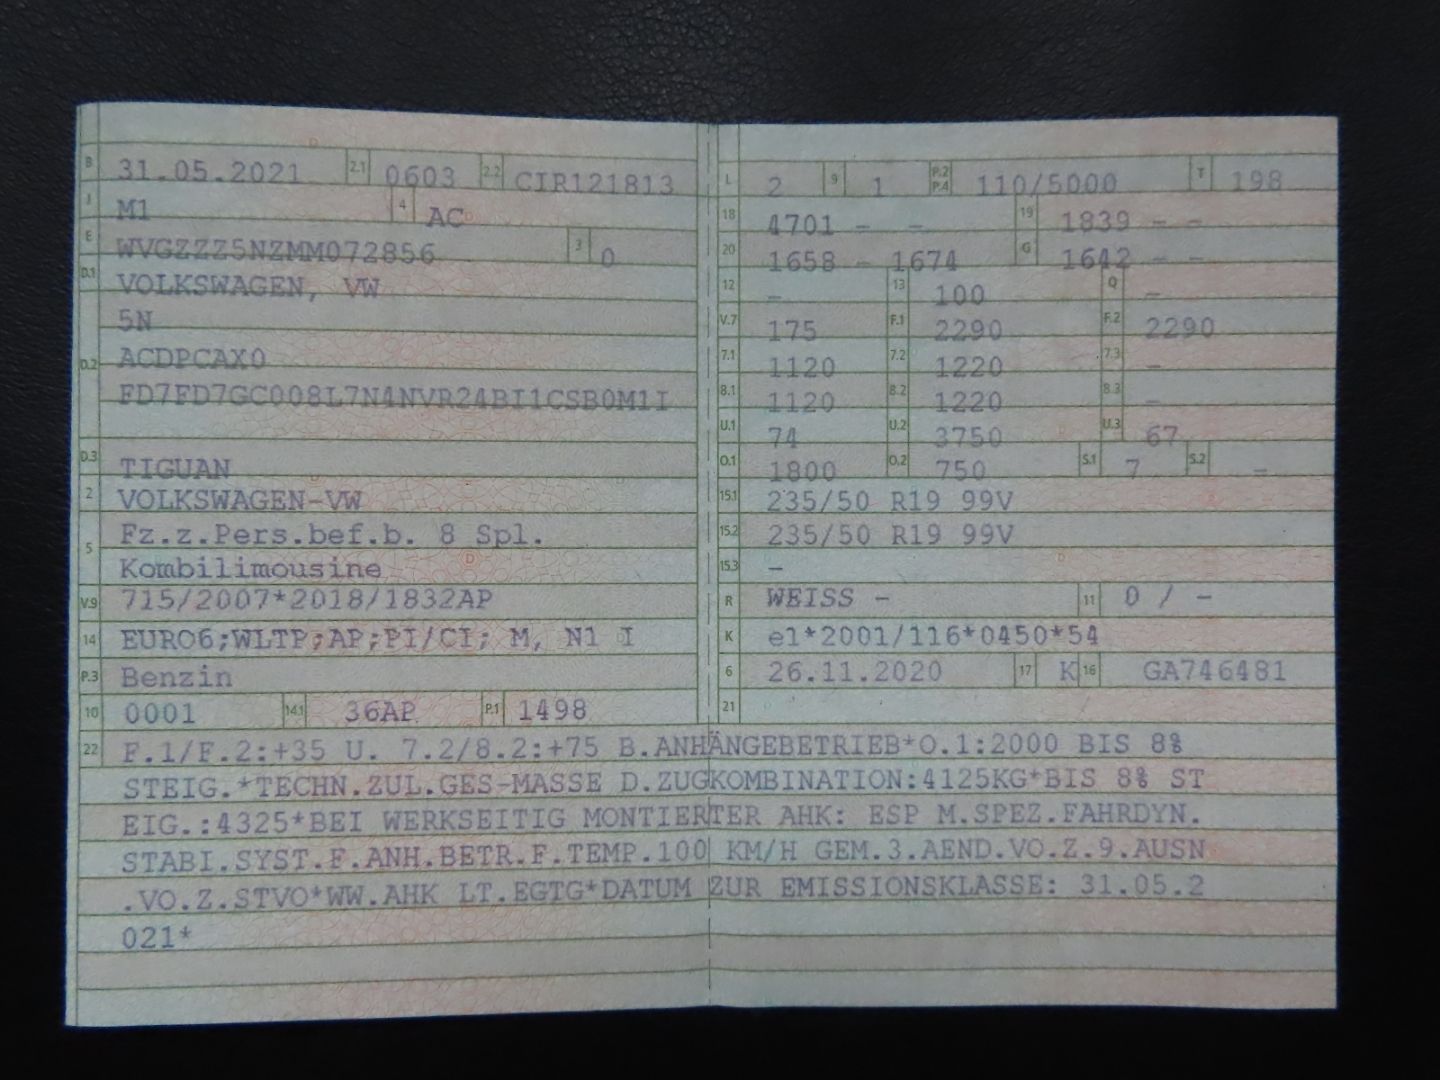 B 31.05.2021 2.1 0603 2.2 CIR121813
J M1 4 AC
E WVGZZZ5NZMM072856 3 0
D.1 VOLKSWAGEN, VW
5N
D.2 ACDPCAX0
FD7FD7GC008L7N4NVR24BI1CSB0M1I
D.3 TIGUAN
2 VOLKSWAGEN-VW
5 Fz.z.Pers.bef.b. 8 Spl.
Kombilimousine
V.9 715/2007*2018/1832AP
14 EURO6;WLTP;AP;PI/CI; M, N1 I
P.3 Benzin
10 0001 14.1 36AP P.1 1498
L 2 9 1 P.2 P.4 110/5000 T 198
18 4701 - - 19 1839 - -
20 1658 - 1674 G 1642 - -
12 - 13 100 Q -
V.7 175 F.1 2290 F.2 2290
7.1 1120 7.2 1220 7.3 -
8.1 1120 8.2 1220 8.3 -
U.1 74 U.2 3750 U.3 67
O.1 1800 O.2 750 S.1 7 S.2 -
15.1 235/50 R19 99V
15.2 235/50 R19 99V
15.3 -
R WEISS - 11 0 / -
K e1*2001/116*0450*54
6 26.11.2020 17 K 16 GA746481
21
22 F.1/F.2:+35 U. 7.2/8.2:+75 B.ANHÄNGEBETRIEB*O.1:2000 BIS 8%
STEIG.*TECHN.ZUL.GES-MASSE D.ZUGKOMBINATION:4125KG*BIS 8% ST
EIG.:4325*BEI WERKSEITIG MONTIERTER AHK: ESP M.SPEZ.FAHRDYN.
STABI.SYST.F.ANH.BETR.F.TEMP.100 KM/H GEM.3.AEND.VO.Z.9.AUSN
.VO.Z.STVO*WW.AHK LT.EGTG*DATUM ZUR EMISSIONSKLASSE: 31.05.2
021*